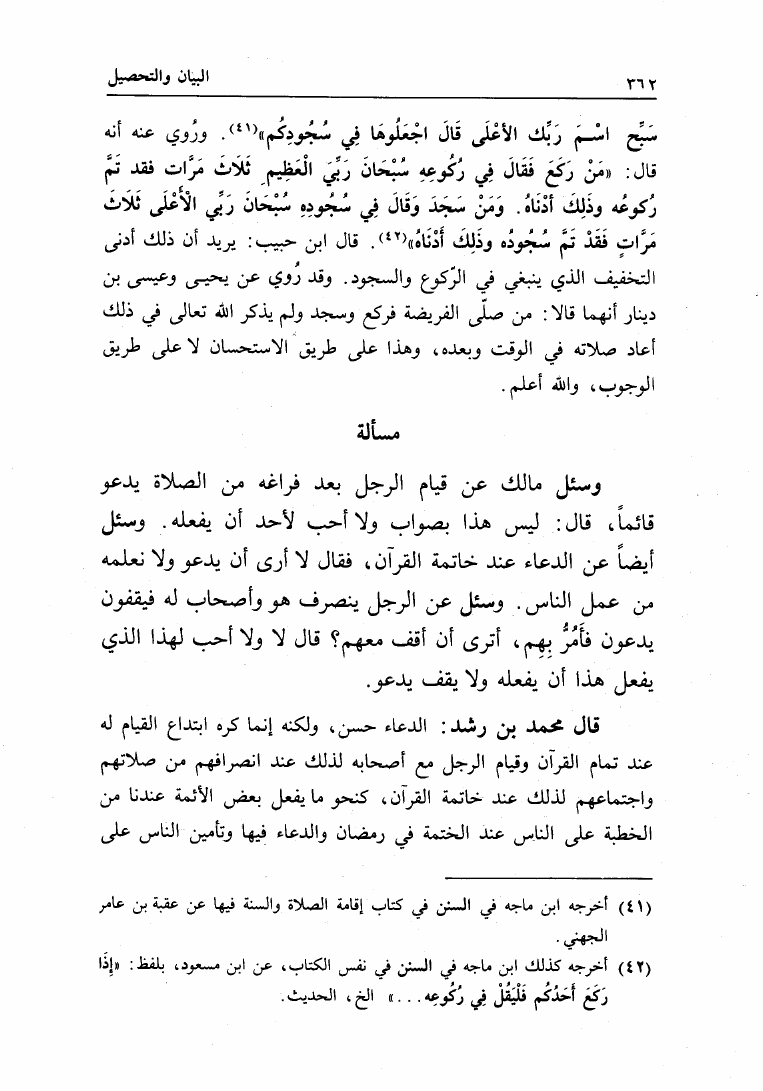 ٣٦٢ البيان والتحصيل
سَبِّح اسْمَ رَبِّك الأعْلَى قَالَ اجْعَلُوهَا فِي سُجُودِكُم»(٤١). ورُوي عنه أنه
قال: «مَنْ رَكَعَ فَقَالَ فِي رُكُوعِهِ سُبْحَانَ رَبِّيَ الْعَظِيمِ ثَلَاثَ مَرَّات فقد تَمَّ
رُكوعُه وذَلِكَ أدْنَاهُ. وَمَنْ سَجَدَ وَقَالَ فِي سُجُودِهِ سُبْحَانَ رَبِّي الْأَعْلَى ثَلَاثَ
مَرَّاتٍ فَقَدْ تَمَّ سُجُودُه وذَلِكَ أَدْنَاهُ»(٤٢). قال ابن حبيب: يريد أن ذلك أدنى
التخفيف الذي ينبغي في الرّكوع والسجود. وقد رُوي عن يحيى وعيسى بن
دينار أنهما قالا: من صلّى الفريضة فركع وسجد ولم يذكر الله تعالى في ذلك
أعاد صلاته في الوقت وبعده، وهذا على طريق الاستحسان لا على طريق
الوجوب، والله أعلم.
مسألة
وسئل مالك عن قيام الرجل بعد فراغه من الصلاة يدعو
قائماً، قال: ليس هذا بصواب ولا أحب لأحد أن يفعله. وسئل
أيضاً عن الدعاء عند خاتمة القرآن، فقال لا أرى أن يدعو ولا نعلمه
من عمل الناس. وسئل عن الرجل ينصرف هو وأصحاب له فيقفون
يدعون فأَمُرُّ بِهِم، أترى أن أقف معهم؟ قال لا ولا أحب لهذا الذي
يفعل هذا أن يفعله ولا يقف يدعو.
قال محمد بن رشد: الدعاء حسن، ولكنه إنما كره ابتداع القيام له
عند تمام القرآن وقيام الرجل مع أصحابه لذلك عند انصرافهم من صلاتهم
واجتماعهم لذلك عند خاتمة القرآن، كنحو ما يفعل بعض الأئمة عندنا من
الخطبة على الناس عند الختمة في رمضان والدعاء فيها وتأمين الناس على
(٤١) أخرجه ابن ماجه في السنن في كتاب إقامة الصلاة والسنة فيها عن عقبة بن عامر
الجهني.
(٤٢) أخرجه كذلك ابن ماجه في السنن في نفس الكتاب، عن ابن مسعود، بلفظ: «إِذَا
رَكَعَ أَحَدُكُم فَلْيَقُلْ فِي رُكُوعِه...» الخ، الحديث.